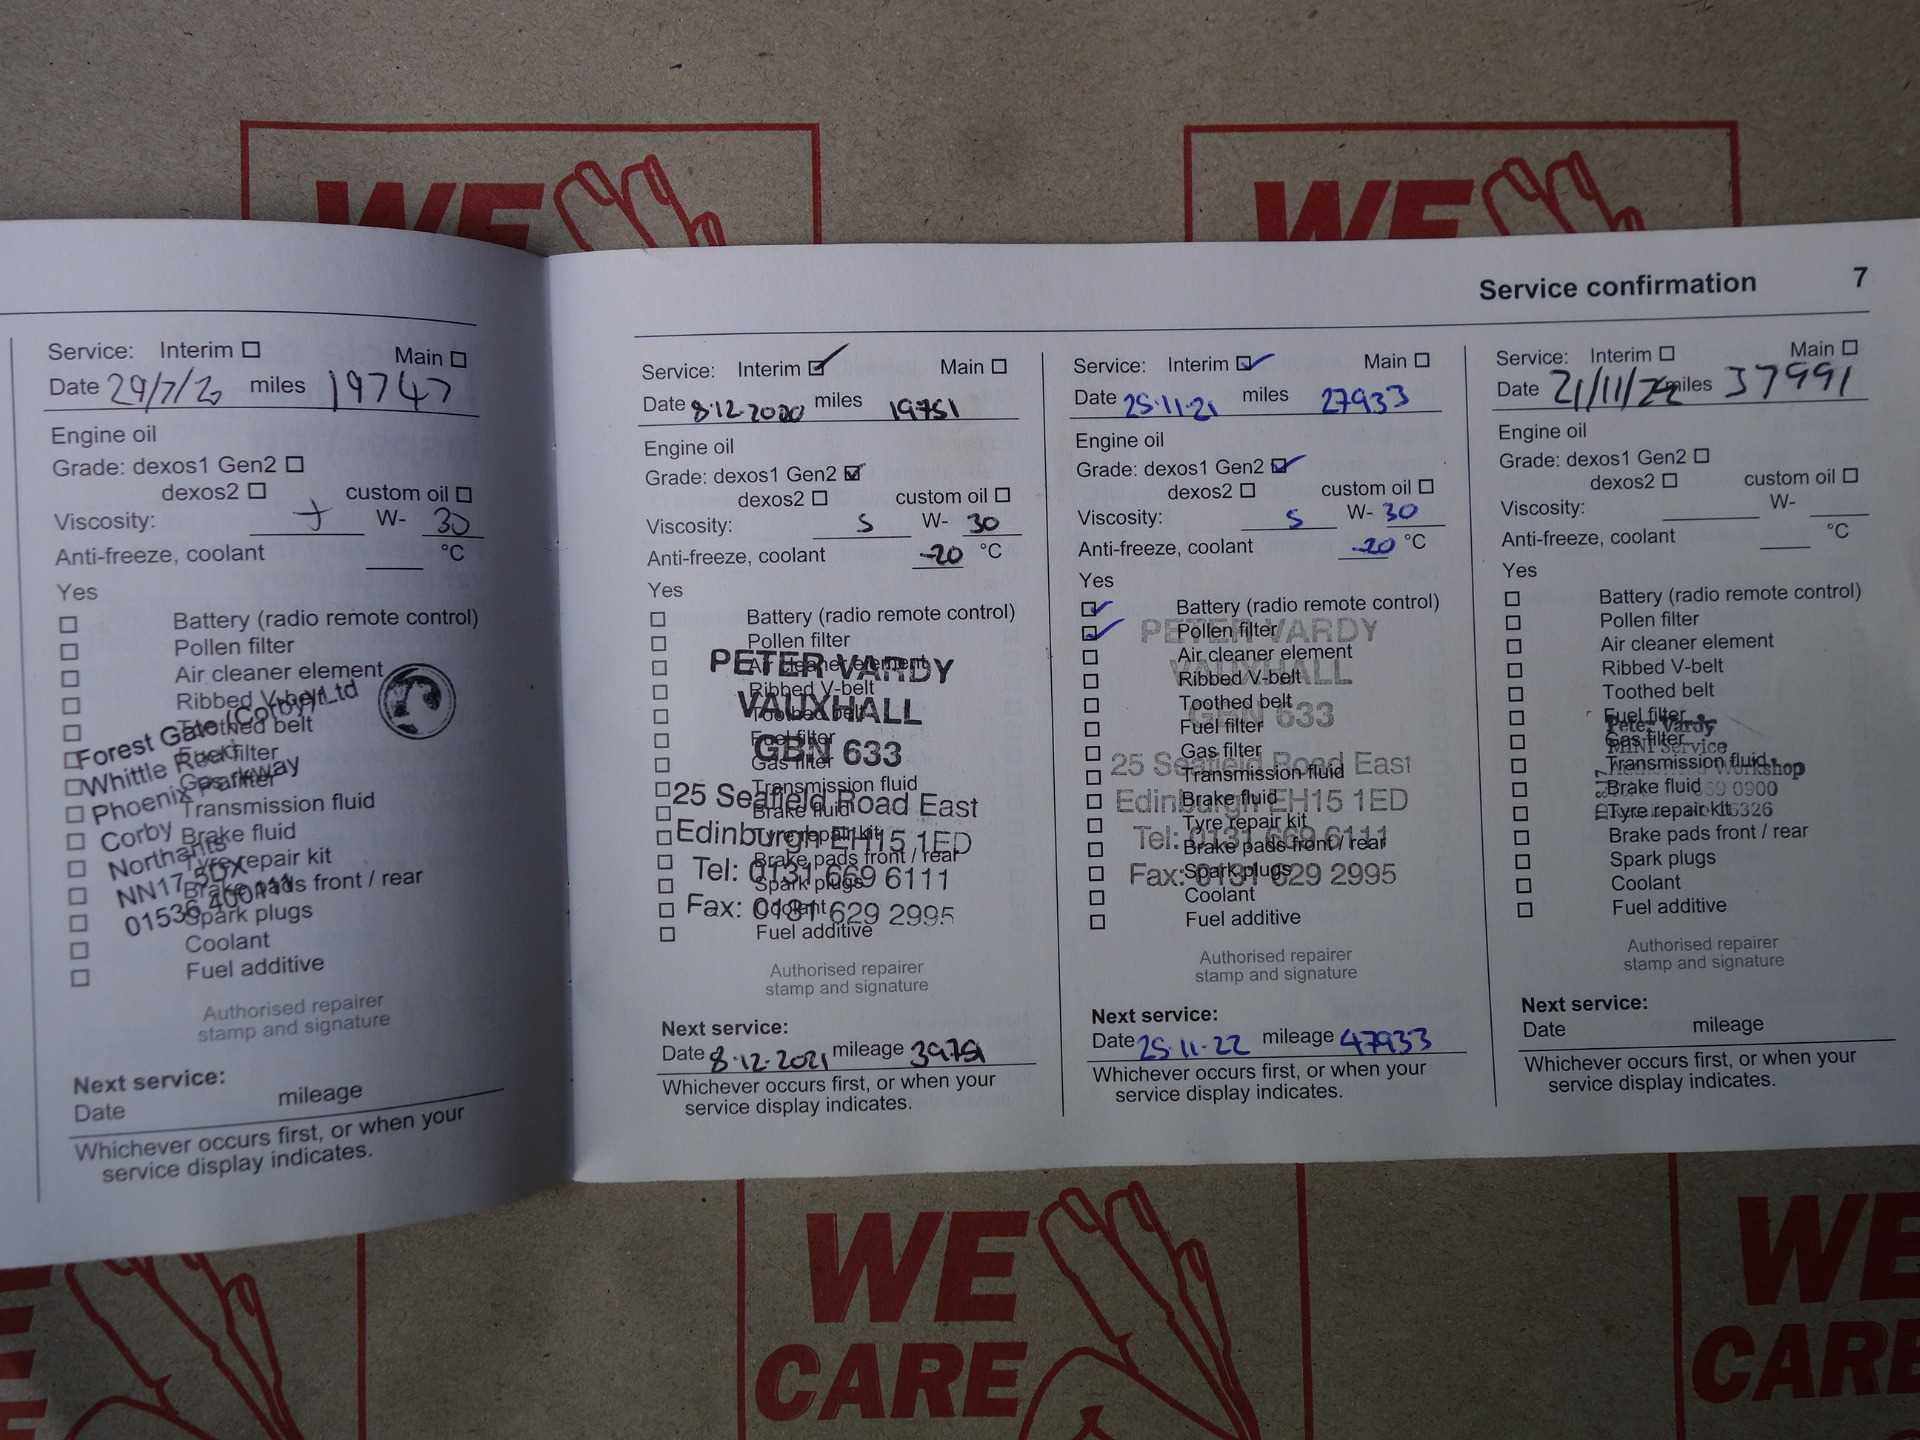 WE
WE
Service confirmation 7
Service: Interim Main
Date 29/7/20 miles 19747
Engine oil
Grade: dexos1 Gen2
dexos2 custom oil
Viscosity: W- 30
Anti-freeze, coolant °C
Yes
Battery (radio remote control)
Pollen filter
Air cleaner element
Ribbed V-belt
Toothed belt
Fuel filter
Gas filter
Transmission fluid
Brake fluid
Tyre repair kit
Brake pads front / rear
Spark plugs
Coolant
Fuel additive
Forest Gate (Corby) Ltd
Whittle Road
Phoenix Parkway
Corby
Northants
NN17 5DX
01536 400111
Authorised repairer
stamp and signature
Next service:
Date mileage
Whichever occurs first, or when your
service display indicates.
Service: Interim Main
Date 8.12.2020 miles 19751
Engine oil
Grade: dexos1 Gen2
dexos2 custom oil
Viscosity: 5 W- 30
Anti-freeze, coolant -20 °C
Yes
Battery (radio remote control)
Pollen filter
Air cleaner element
Ribbed V-belt
Toothed belt
Fuel filter
Gas filter
Transmission fluid
Brake fluid
Tyre repair kit
Brake pads front / rear
Spark plugs
Coolant
Fuel additive
PETER VARDY
VAUXHALL
GBN 633
25 Seafield Road East
Edinburgh EH15 1ED
Tel: 0131 669 6111
Fax: 0131 629 2995
Authorised repairer
stamp and signature
Next service:
Date 8.12.2021 mileage 39751
Whichever occurs first, or when your
service display indicates.
Service: Interim Main
Date 25.11.21 miles 27933
Engine oil
Grade: dexos1 Gen2
dexos2 custom oil
Viscosity: 5 W- 30
Anti-freeze, coolant -20 °C
Yes
Battery (radio remote control)
Pollen filter
Air cleaner element
Ribbed V-belt
Toothed belt
Fuel filter
Gas filter
Transmission fluid
Brake fluid
Tyre repair kit
Brake pads front / rear
Spark plugs
Coolant
Fuel additive
PETER VARDY
VAUXHALL
GBN 633
25 Seafield Road East
Edinburgh EH15 1ED
Tel: 0131 669 6111
Fax: 0131 629 2995
Authorised repairer
stamp and signature
Next service:
Date 25.11.22 mileage 47933
Whichever occurs first, or when your
service display indicates.
Service: Interim Main
Date 21/11/22 miles 37991
Engine oil
Grade: dexos1 Gen2
dexos2 custom oil
Viscosity: W-
Anti-freeze, coolant °C
Yes
Battery (radio remote control)
Pollen filter
Air cleaner element
Ribbed V-belt
Toothed belt
Fuel filter
Gas filter
Transmission fluid
Brake fluid
Tyre repair kit
Brake pads front / rear
Spark plugs
Coolant
Fuel additive
Peter Vardy
MINI Service
Workshop
0900
Authorised repairer
stamp and signature
Next service:
Date mileage
Whichever occurs first, or when your
service display indicates.
WE
CARE
WE
CARE